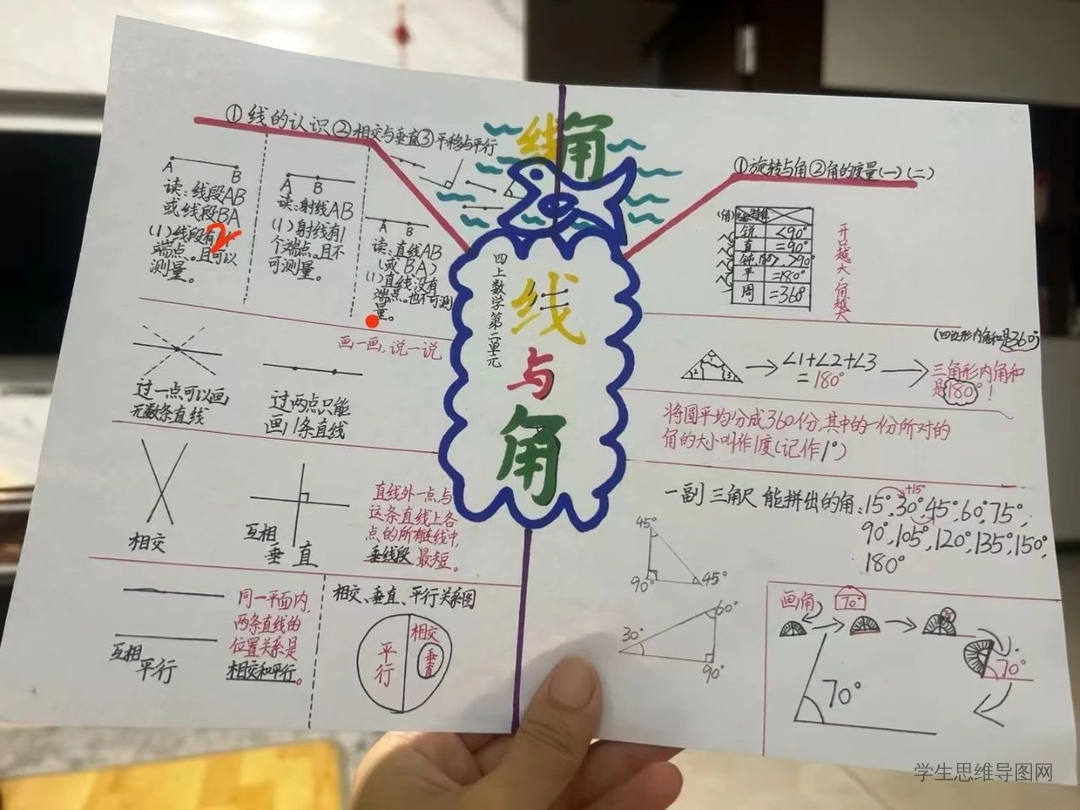 线角
①线的认识②相交与垂直③平移与平行
A B
读:线段AB
或线段BA
(1)线段有2
端点。且可以
测量。
A B
读:射线AB
(1)射线有1
个端点。且不
可测量。
A B
读:直线AB
(或BA)
(1)直线没有
端点。也不可测
量。
画一画,说一说
过一点可以画
无数条直线
过两点只能
画1条直线
相交
互相
垂直
直线外一点与
这条直线上各
点的所有连线中,
垂线段最短。
互相
平行
同一平面内,
两条直线的
位置关系是
相交和平行。
相交、垂直、平行关系图
平行
相交
垂直
四上数学第二单元
线
与
角
①旋转与角②角的度量(一)(二)
锐 <90°
直 =90°
钝
平 =180°
周 =360°
开口越大,角越大
(四边形内角和是360°)
∠1+∠2+∠3
=180°
三角形内角和
是180°!
将圆平均分成360份,其中的一份所对的
角的大小叫作1度(记作1°)
一副三角尺能拼出的角:15°,30°,45°,60°,75°,
+15°
90°,105°,120°,135°,150°,
180°
45°
90°
45°
60°
30°
90°
画角
70°
70°
70°
学生思维导图网